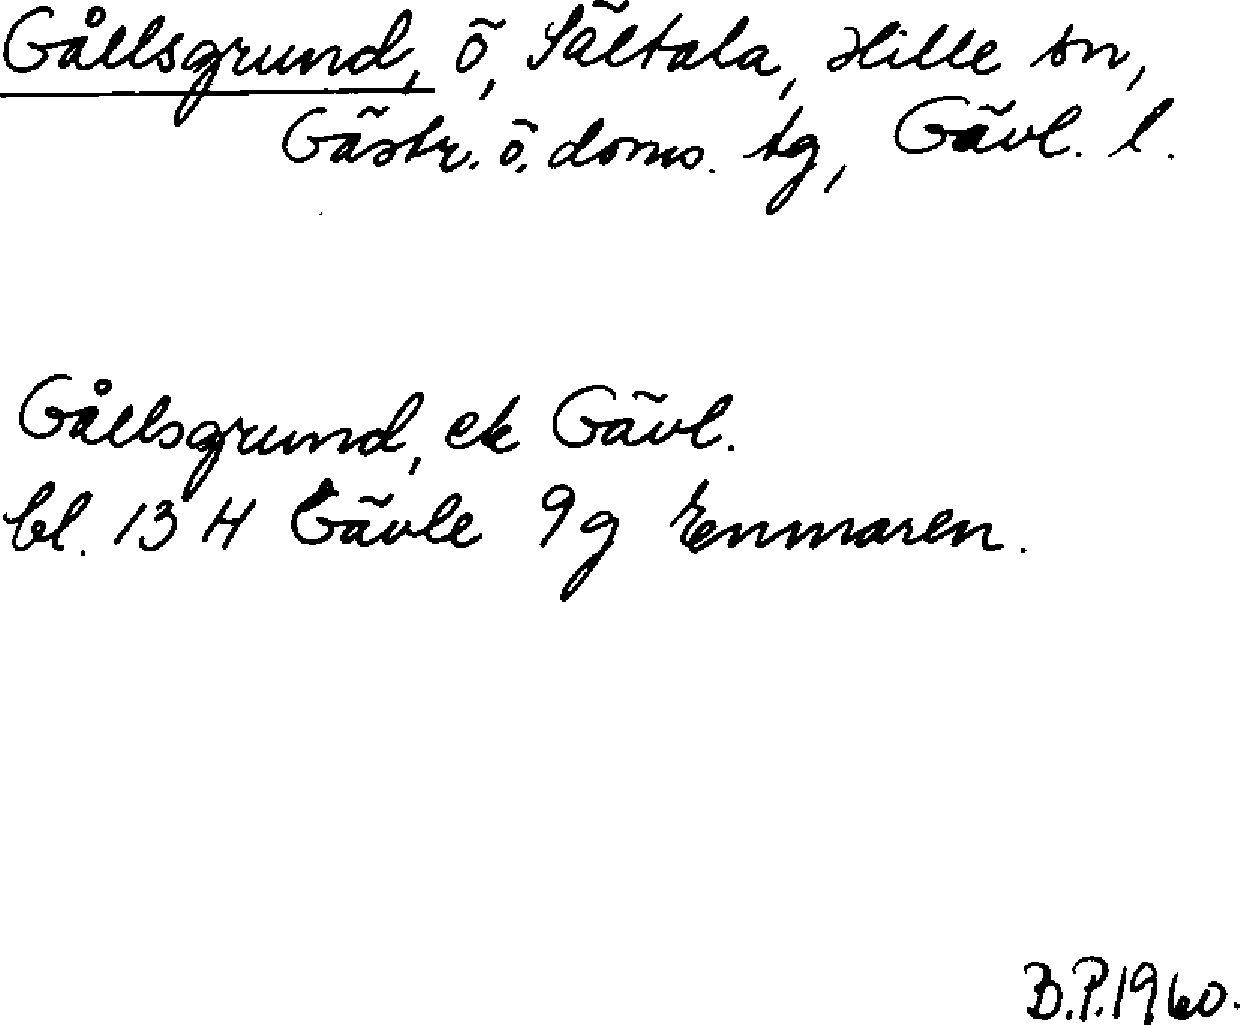 Gållsgrund, ö, Sältala, Hille sn,
Gästr. ö. doms. tg, Gävl. l.
Gållsgrund, ek Gävl.
bl. 13 H Gävle 9g Enmaren.
B.P. 1960.